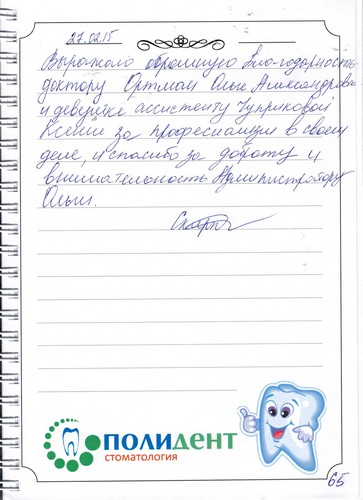 27.02.15
Выражаю огромную благодарность
доктору Ортман Ольге Александровне
и девушке ассистенту Чуприковой
Ксении за професианизм в своем
деле, и спасибо за доброту и
внимательность Администратору
Ольги.
ПОЛИДЕНТ
СТОМАТОЛОГИЯ
65